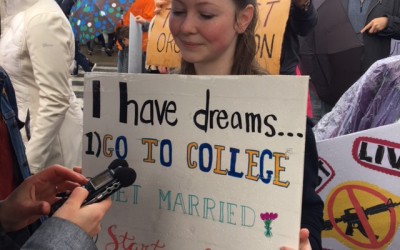 I have dreams...
1) GO TO COLLEGE
GET MARRIED
Start
LIV